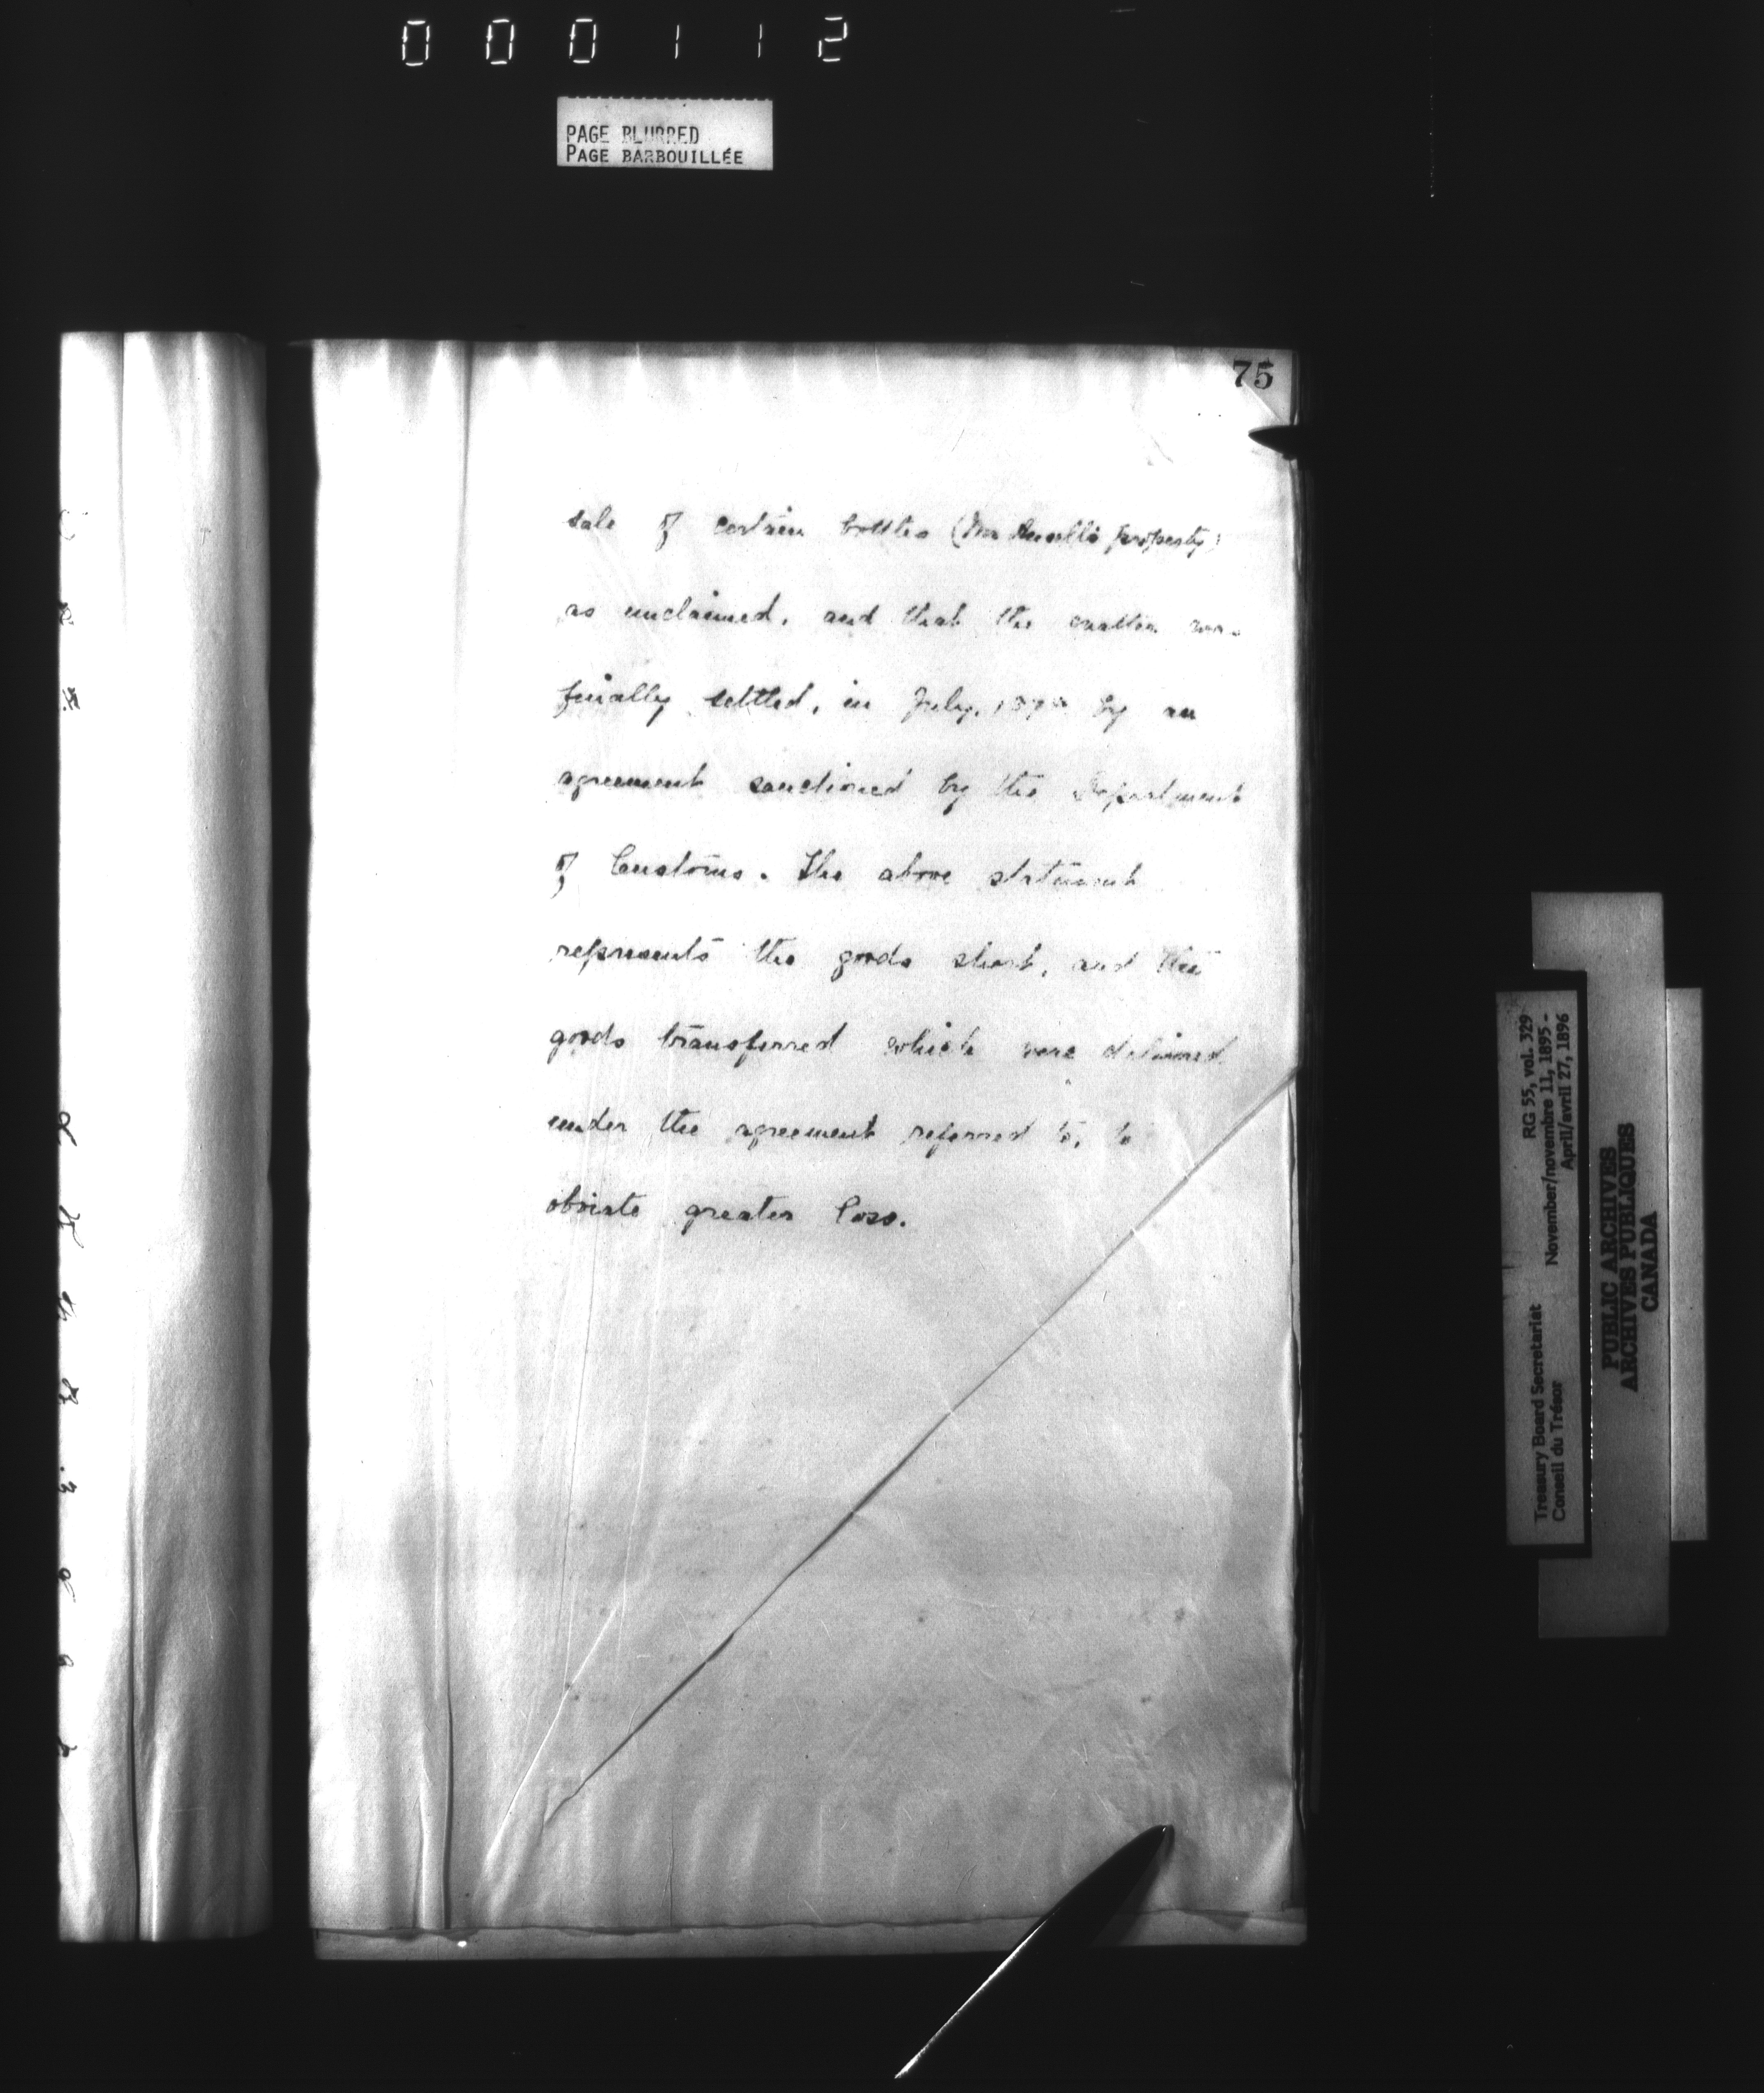 000112
PAGE BLURRED
PAGE BARBOUILLÉE
75
sale of certain bottles (Mr property)
as unclaimed, and that the matter was
finally settled, in July, by an
agreement sanctioned by the Department
of Customs. The above statement
represents the goods short, and the
goods transferred which were delivered
under the agreement referred to, to
obviate greater loss.
Treasury Board Secretariat RG 55, vol. 329
Conseil du Trésor November/novembre 11, 1895 -
April/avril 27, 1896
PUBLIC ARCHIVES
ARCHIVES PUBLIQUES
CANADA